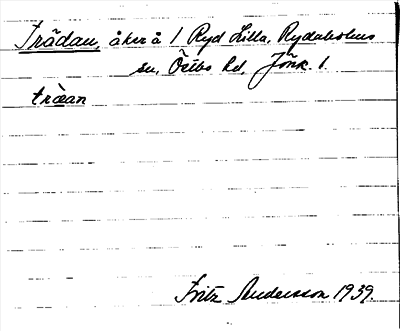 Trädan, åker å 1 Ryd Lilla, Rydaholms
sn, Östbo hd, Jönk. l.
träan
Fritz Andersson 1939.